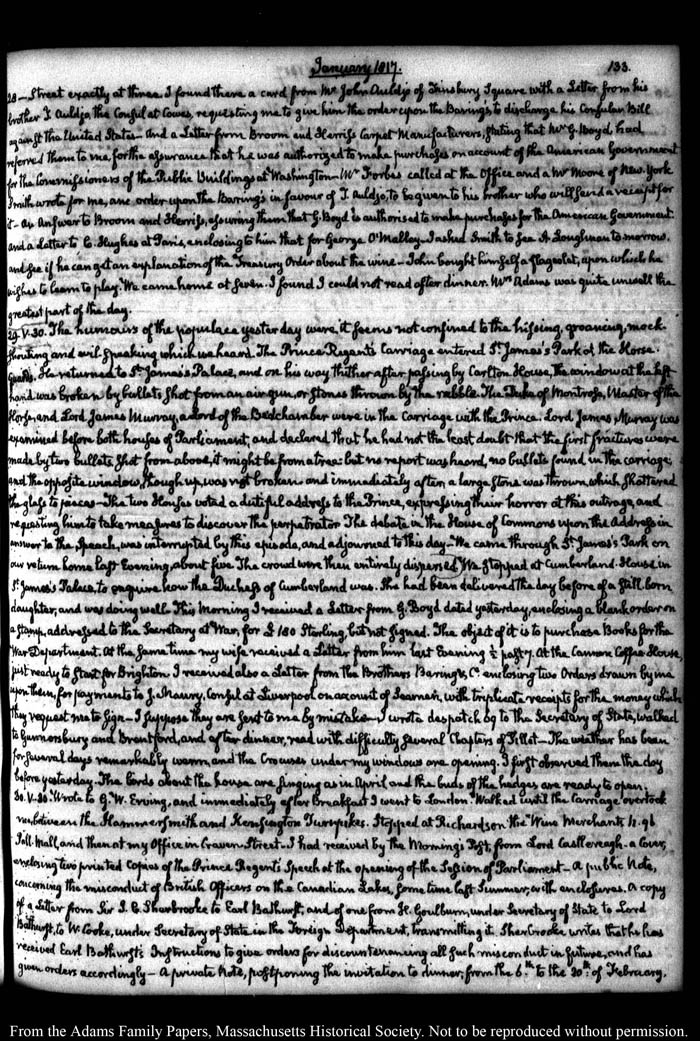 January 1817.
133.
28 — Street exactly at three. I found there a card from Mr John Auldjo of Finsbury Square with a Letter from his
brother T. Auldjo the Consul at Cowes, requesting me to give him the order upon the Barings to discharge his Consular Bill
against the United States — And a Letter from Broom and Herriss Carpet Manufacturers, stating that Mr G. Boyd had
referred them to me, for the assurance that he was authorized to make purchases on account of the American Government
for the Commissioners of the Public Buildings at Washington — Mr Forbes called at the Office and a Mr Moore of New York
Smith wrote for me, an order upon the Barings in favour of T. Auldjo, to be given to his brother who will send a receipt for
it — an Answer to Broom and Herriss, assuring them that G. Boyd is authorised to make purchases for the American Government
and a Letter to C. Hughes at Paris, enclosing to him that for George O'Malley — I asked Smith to see A. Loughnan to morrow,
and see if he can get an explanation of the Treasury Order about the wine — John bought himself a flageolet, upon which he
wishes to learn to play. We came home at seven. I found I could not read after dinner. Mrs Adams was quite unwell the
greatest part of the day.
29. V.30. The humours of the populace yesterday were, it seems not confined to the hissing, groaning, mock-
shouting and evil speaking which we heard. The Prince Regent's Carriage entered St. James's Park at the Horse-
Guards. He returned to St. James's Palace, and on his way thither after passing by Carlton House, the window at the left
hand was broken by bullets shot from an air gun, or stones thrown by the rabble. The Duke of Montrose, Master of the
Horse, and Lord James Murray, a Lord of the Bedchamber were in the Carriage with the Prince. Lord James Murray was
examined before both houses of Parliament, and declared that he had not the least doubt that the first fractures were
made by two bullets shot from above, it might be from a tree: but no report was heard, no bullets found in the carriage,
and the opposite window, though up, was not broken and immediately after, a large stone was thrown which shattered
the glass to pieces — The two Houses voted a dutiful address to the Prince, expressing their horror at this outrage, and
requesting him to take measures to discover the perpetrator. The debate in the House of Commons upon the Address in
answer to the Speech, was interrupted by this episode, and adjourned to this day — We came through St. James's Park on
our return home last Evening, about five. The crowd were then entirely dispersed. We stopped at Cumberland House in
St. James's Palace, to enquire how the Duchess of Cumberland was. She had been delivered the day before of a still born
daughter, and was doing well. This Morning I received a Letter from G. Boyd dated yesterday, enclosing a blank order on
a stamp, addressed to the Secretary at War, for £180 Sterling, but not signed. The object of it is to purchase Books for the
War Department. At the same time my wife received a Letter from him last Evening ½ past 7. At the Cannon Coffee House,
just ready to start for Brighton. I received also a Letter from the Brothers Baring & Co enclosing two Orders drawn by me
upon them, for payments to J. Maury, Consul at Liverpool on account of Seamen, with triplicate receipts for the money which
they request me to sign — I suppose they are sent to me by mistake — I wrote despatch 69 to the Secretary of State, walked
to Gunnersbury and Brentford, and after dinner, read with difficulty several Chapters of Tillot — The weather has been
for several days remarkably warm, and the Crocuses under my windows are opening. I first observed them the day
before yesterday. The birds about the house are singing as in April and the buds of the hedges are ready to open.
30. V.30. Wrote to G. W. Erving, and immediately after Breakfast I went to London. Walked until the carriage overtook
me, between the Hammersmith and Kensington Turnpikes. Stopped at Richardson the Wine Merchants N. 96
Pall Mall, and then at my Office in Craven Street. I had received by the Morning's Post, from Lord Castlereagh — a Cover,
enclosing two printed Copies of the Prince Regent's Speech at the opening of the Session of Parliament — A public Note,
concerning the misconduct of British Officers on the Canadian Lakes, some time last Summer, with enclosures. A copy
of a Letter from Sir J. C. Sherbrooke to Earl Bathurst, and of one from H. Goulburn, under Secretary of State to Lord
Bathurst, to W. Cooke, under Secretary of State in the Foreign Department, transmitting it. Sherbrooke writes that he has
received Earl Bathurst's Instructions to give orders for discountenancing all such misconduct in future, and has
given orders accordingly — A private Note, postponing the invitation to dinner, from the 6th to the 20th of February.
From the Adams Family Papers, Massachusetts Historical Society. Not to be reproduced without permission.